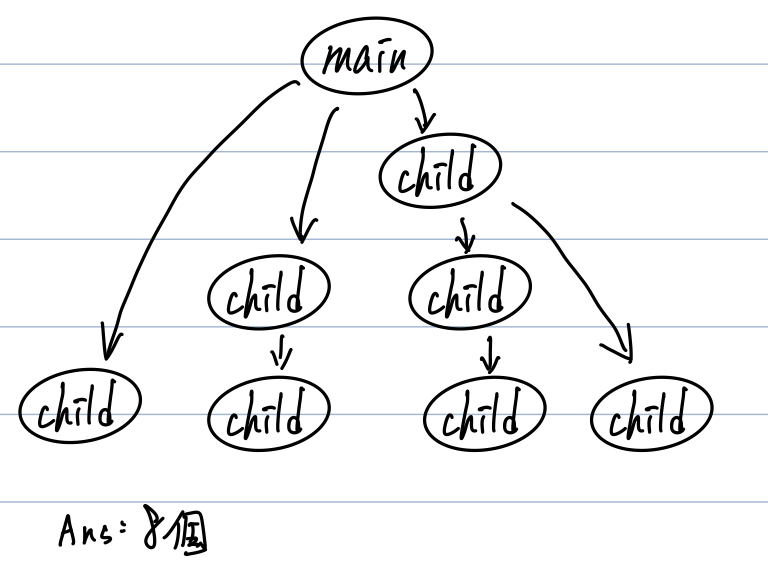 main
child
child child
child child child child
Ans: 8個